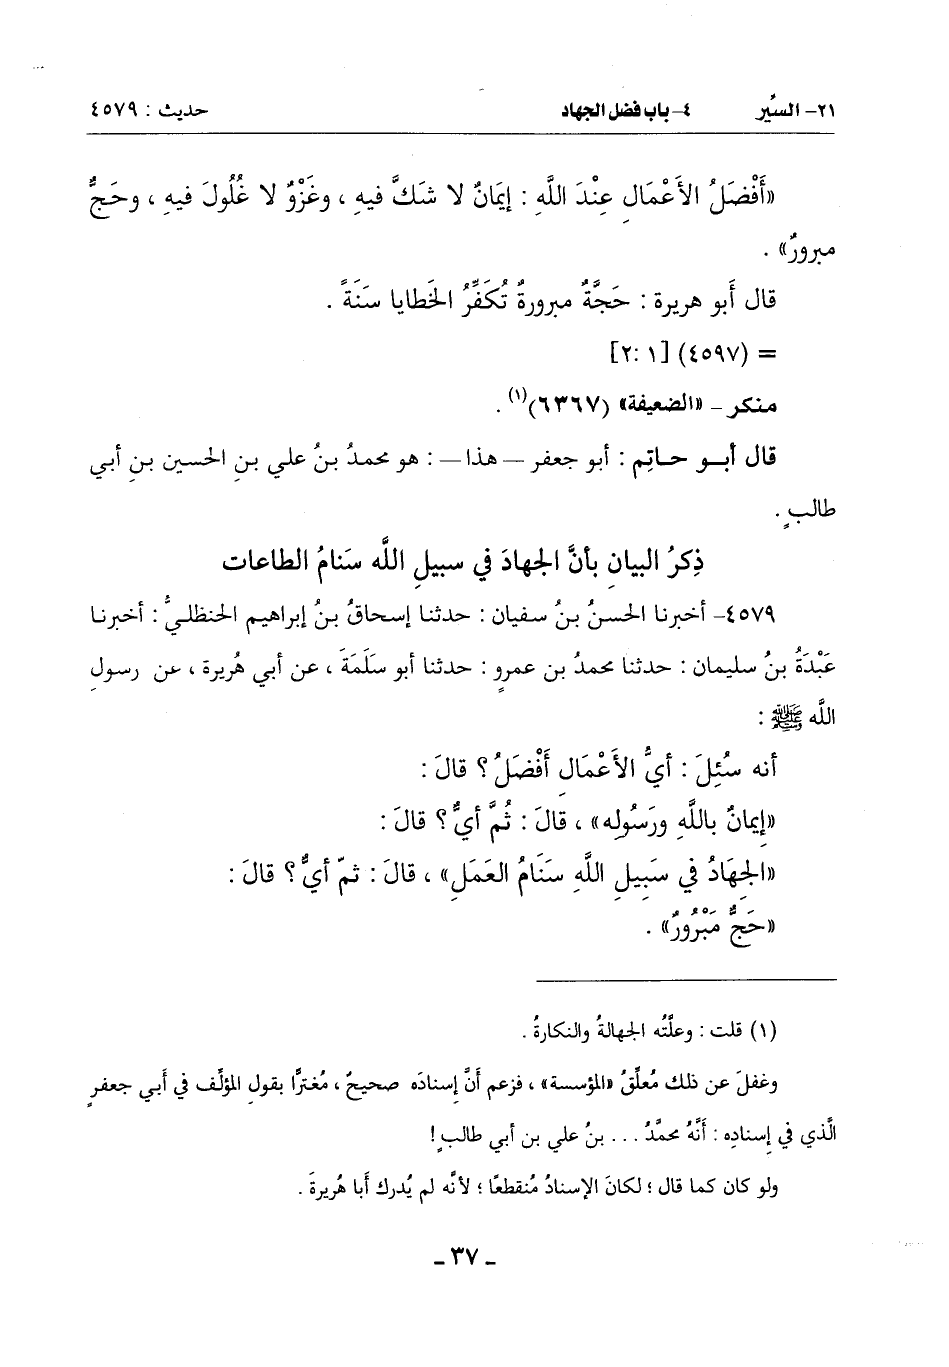 ٢١- السِّير ٤- باب فضل الجهاد حديث : ٤٥٧٩
«أَفْضَلُ الأَعْمَالِ عِنْدَ اللَّهِ : إيمَانٌ لا شَكَّ فيهِ ، وغَزْوٌ لا غُلُولَ فيهِ ، وحَجٌّ
مبرورٌ» .
قال أَبو هريرة : حَجَّةٌ مبرورةٌ تُكَفِّرُ الخَطايا سَنَةً .
= (٤٥٩٧) [١ :٢]
منكر – «الضعيفة» (٦٣٦٧)(١) .
قال أبــو حــاتِم : أبو جعفر — هذا — : هو محمدُ بنُ علي بنِ الحسين بنِ أبي
طالبٍ .
ذِكرُ البيانِ بأنَّ الجهادَ في سبيلِ اللَّه سَنامُ الطاعات
٤٥٧٩– أخبرنا الحسنُ بنُ سفيان : حدثنا إسحاقُ بنُ إبراهيم الحنظليُّ : أخبرنا
عَبْدَةُ بنُ سليمان : حدثنا محمدُ بن عمرٍو : حدثنا أبو سَلَمَةَ ، عن أبي هُريرة ، عن رسولِ
اللَّه ﷺ :
أنه سُئِلَ : أيُّ الأَعْمَالِ أَفْضَلُ ؟ قالَ :
«إيمَانٌ باللَّهِ ورَسُولِه» ، قالَ : ثُمَّ أيٌّ ؟ قالَ :
«الجِهَادُ في سَبِيلِ اللَّهِ سَنَامُ العَمَلِ» ، قالَ : ثمّ أيٌّ ؟ قالَ :
«حَجٌّ مَبْرُورٌ» .
(١) قلت : وعلَّتُه الجهالةُ والنكارةُ .
وغفلَ عن ذلك مُعلِّقُ «المؤسسة» ، فزعم أنَّ إسنادَه صحيحٌ ، مُغترًّا بقولِ المؤلِّف في أَبي جعفرٍ
الَّذي في إسنادِه : أنَّهُ محمَّدُ ... بنُ علي بن أبي طالبٍ !
ولو كان كما قال ؛ لكانَ الإسنادُ مُنقطعًا ؛ لأنَّه لم يُدرك أَبا هُريرةَ .
– ٣٧ –